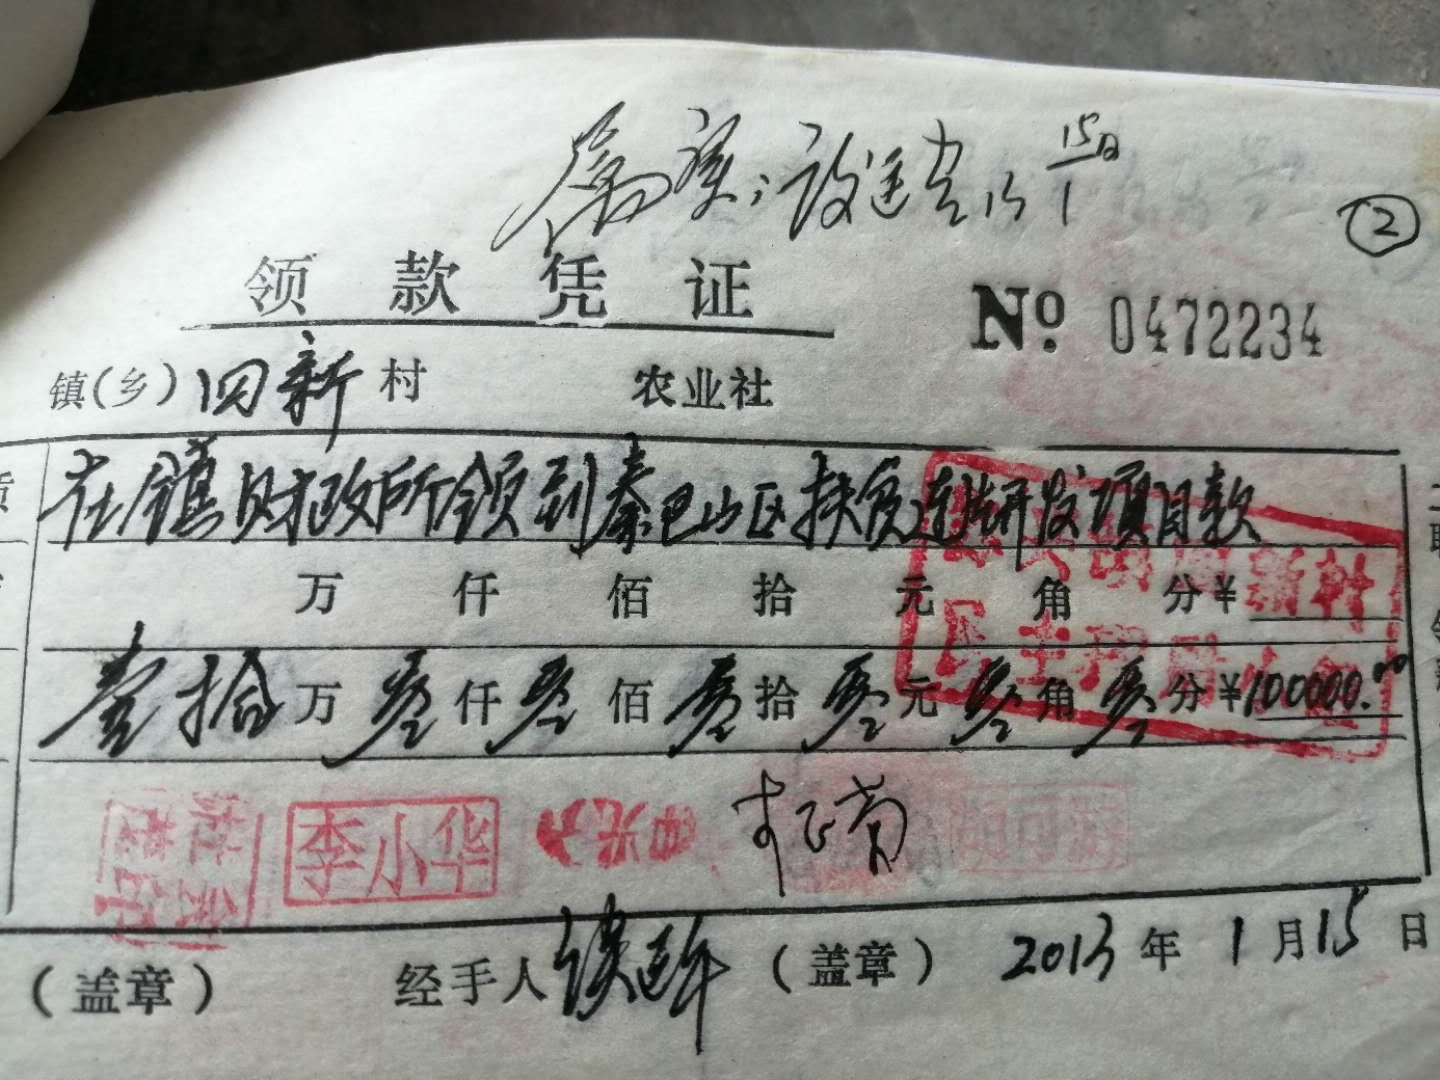 属实
15日
②
领款凭证
№ 0472234
镇(乡)四新村 农业社
在镇财政所领到秦巴山区扶贫连片开发项目款
万 仟 佰 拾 元 角 分¥
壹拾万零仟零佰零拾零元零角零分¥100000.00
李小华
(盖章) 经手人 (盖章) 2013年1月15日